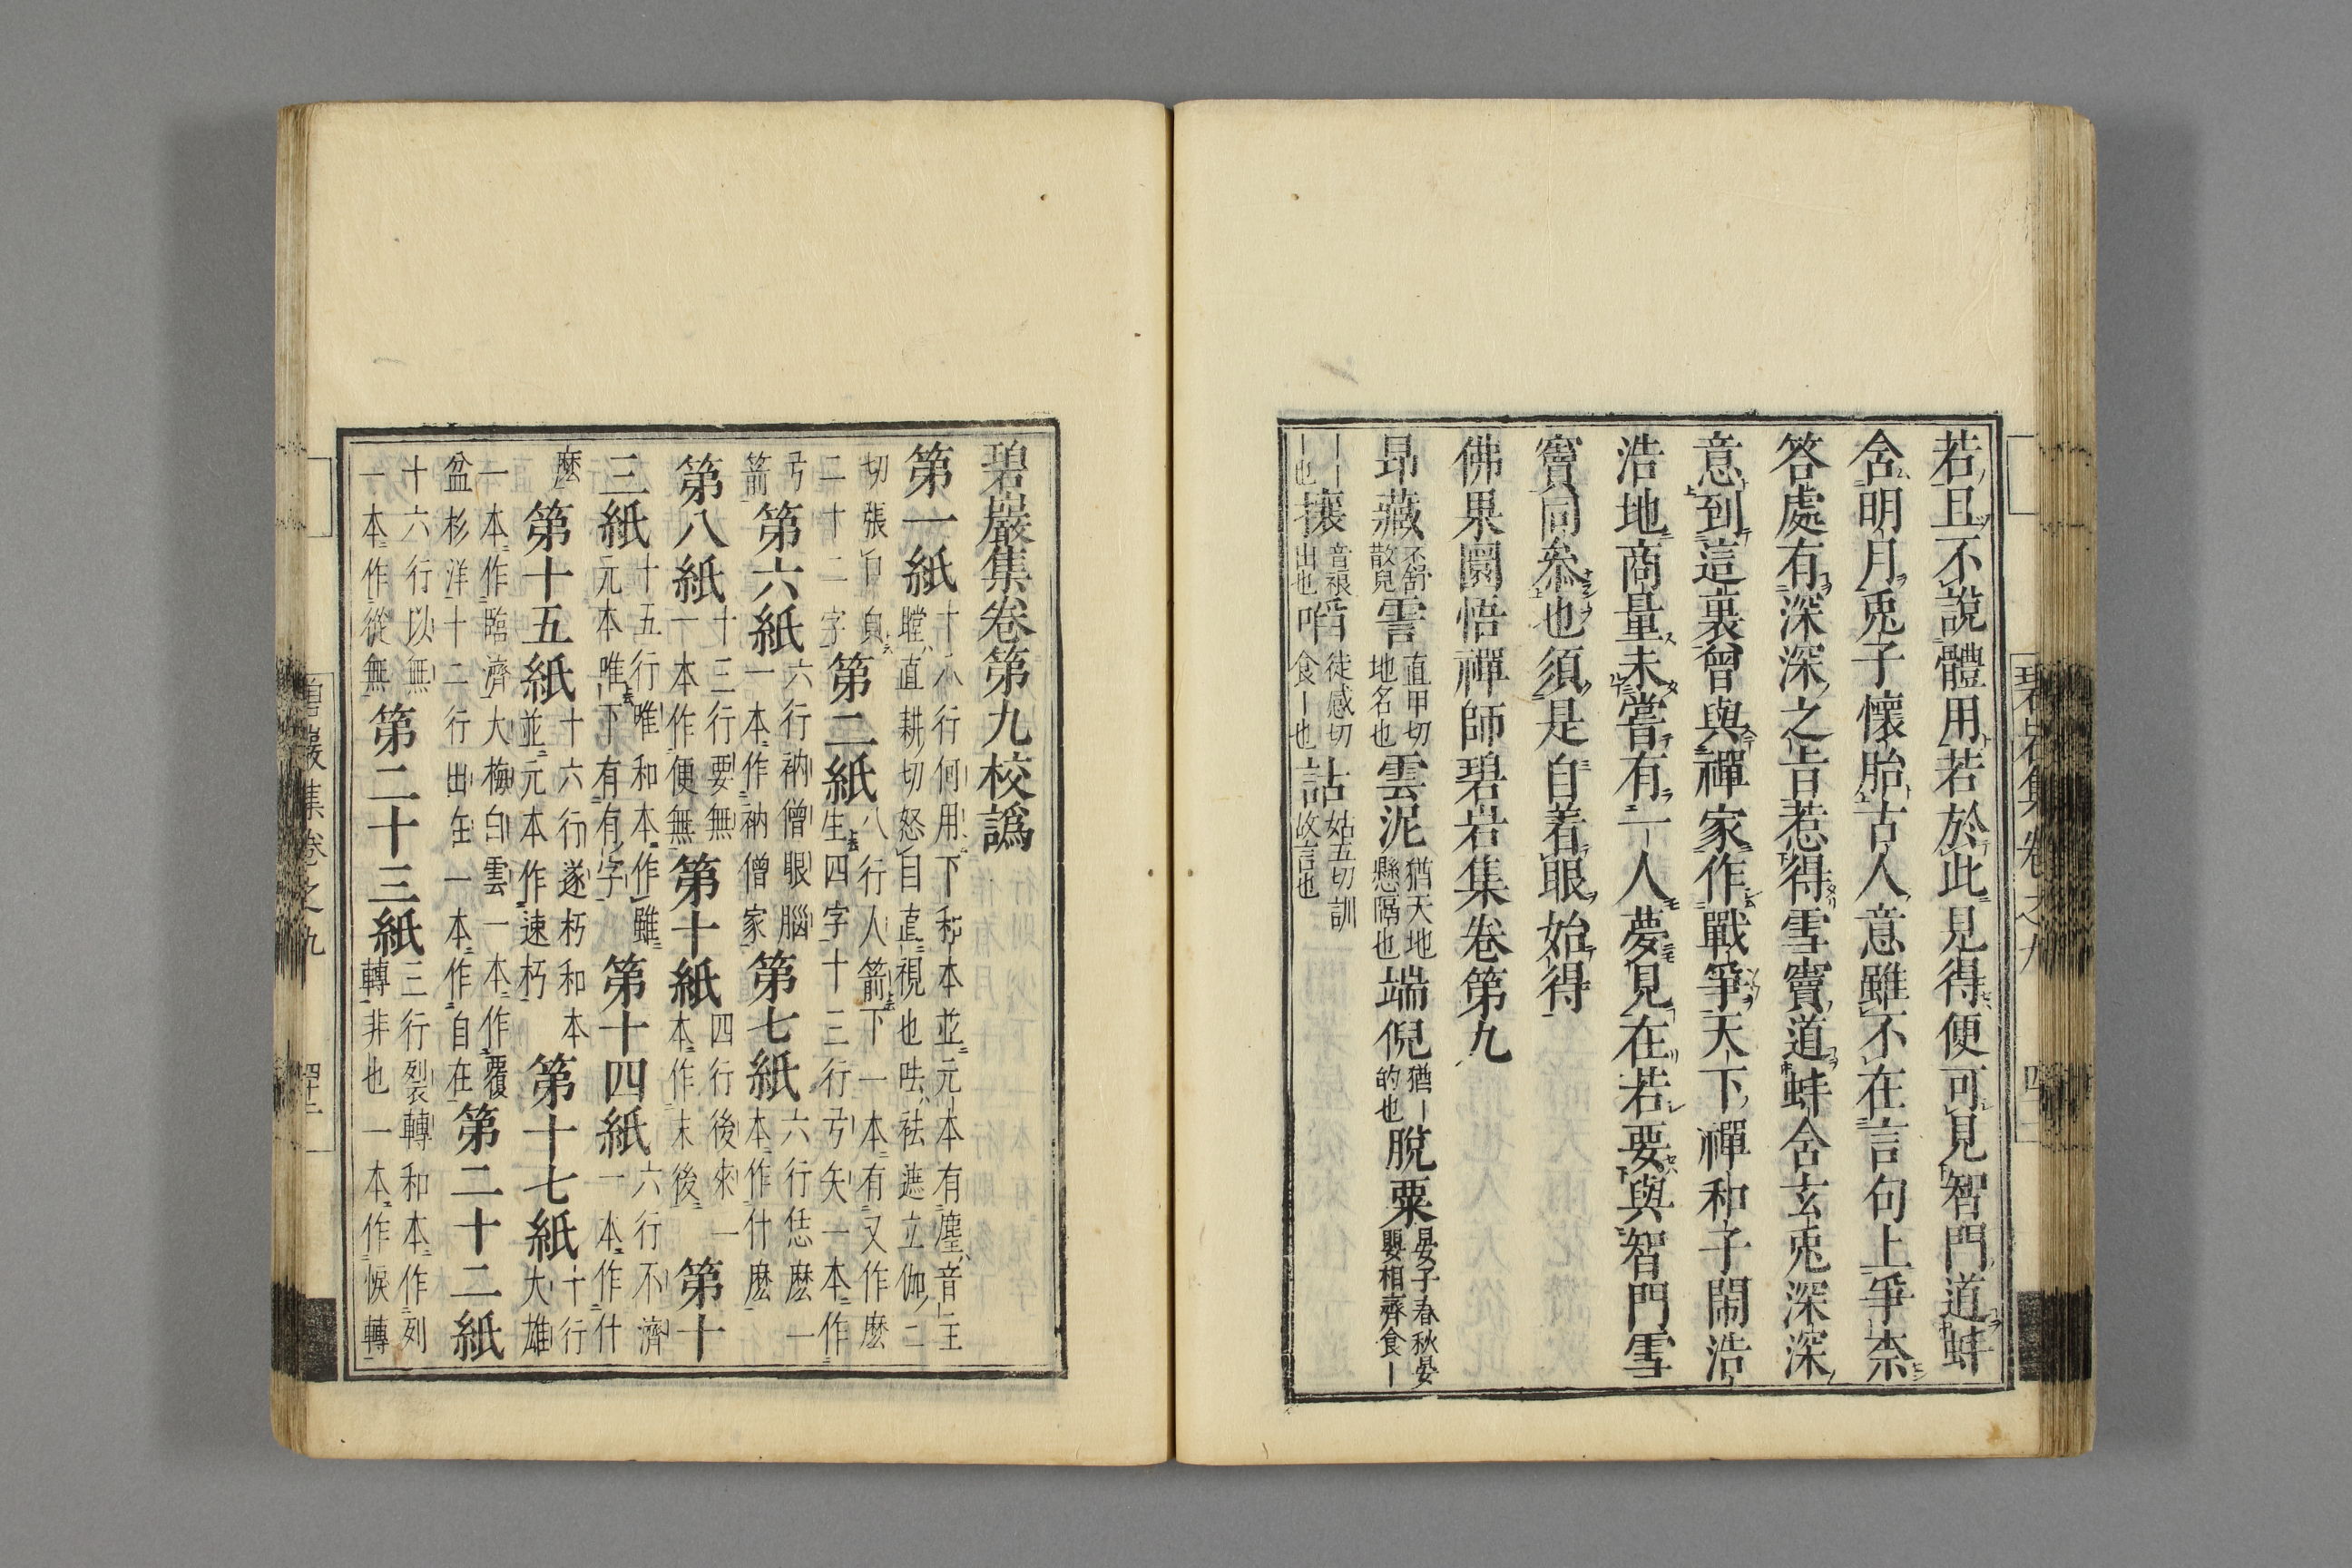 若且不說體用若於此見得便可見智門道蚌
含明月兎子懷胎古人意雖不在言句上爭柰
答處有深深之旨惹得雪竇道蚌含玄兎深深
意到這裏曾與禪家作戰爭天下禪和子鬧浩
浩地商量未嘗有一人夢見在若要與智門雪
竇同叅也須是自着眼始得
佛果圜悟禪師碧岩集卷第九
昂藏 不舒散皃 霅 直甲切地名也 雲泥 猶天地懸隔也 端倪 猶｜的也 脫粟 晏子春秋晏嬰相齊食｜
｜｜｜也 攘 音禳出也 啗 徒感切食｜也 詁 姑五切訓故言也
碧岩集卷之九
碧巖集卷第九校譌
第一紙 十八行何用下和本並元本有塵音主瞠直耕切怒目直視也呿袪遮立伽二
切張口皃二十二字 第二紙 八行人箭下一本有又作麽生四字十三行弓矢一本作
弓箭 第六紙 六行衲僧眼腦一本作衲僧家 第七紙 六行恁麽一本作什麽
第八紙 十三行要無一本作便無 第十紙 四行後來一本作末後 第十
三紙 十五行唯和本作雖元本唯下有有字 第十四紙 六行不濟一本作什
麽 第十五紙 十六行遂朽和本並元本作速朽 第十七紙 十行大雄
一本作臨濟大梅白雲一本作覆盆杉洋十二行出在一本作自在 第二十二紙
十六行以無一本作從無 第二十三紙 三行裂轉和本作列轉非也一本作悮轉
碧巖集卷之九 四十二